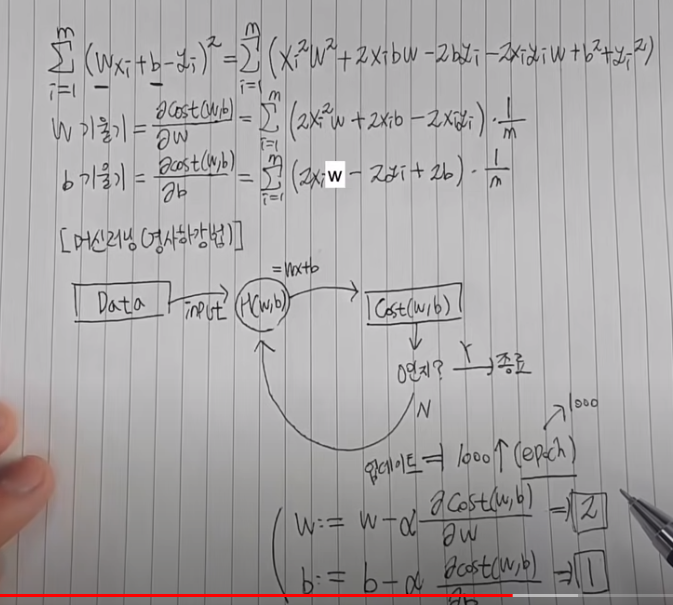 m m
∑ (wxᵢ+b-yᵢ)² = ∑ (xᵢ²w²+2xᵢbw-2byᵢ-2xᵢyᵢw+b²+yᵢ²)
i=1 i=1
w 기울기 = ∂cost(w,b)/∂w = ∑ᵢ₌₁ᵐ (2xᵢ²w+2xᵢb-2xᵢyᵢ)·1/m
b 기울기 = ∂cost(w,b)/∂b = ∑ᵢ₌₁ᵐ (2xᵢw-2yᵢ+2b)·1/m
[머신러닝(경사하강법)]
=wx+b
Data input H(w,b) Cost(w,b)
0인지? Y 종료
N
1000
업데이트 ⇒ 1000↑(epoch)
w:= w-α ∂cost(w,b)/∂w ⇒ 2
b:= b-α ∂cost(w,b)/∂b ⇒ 1